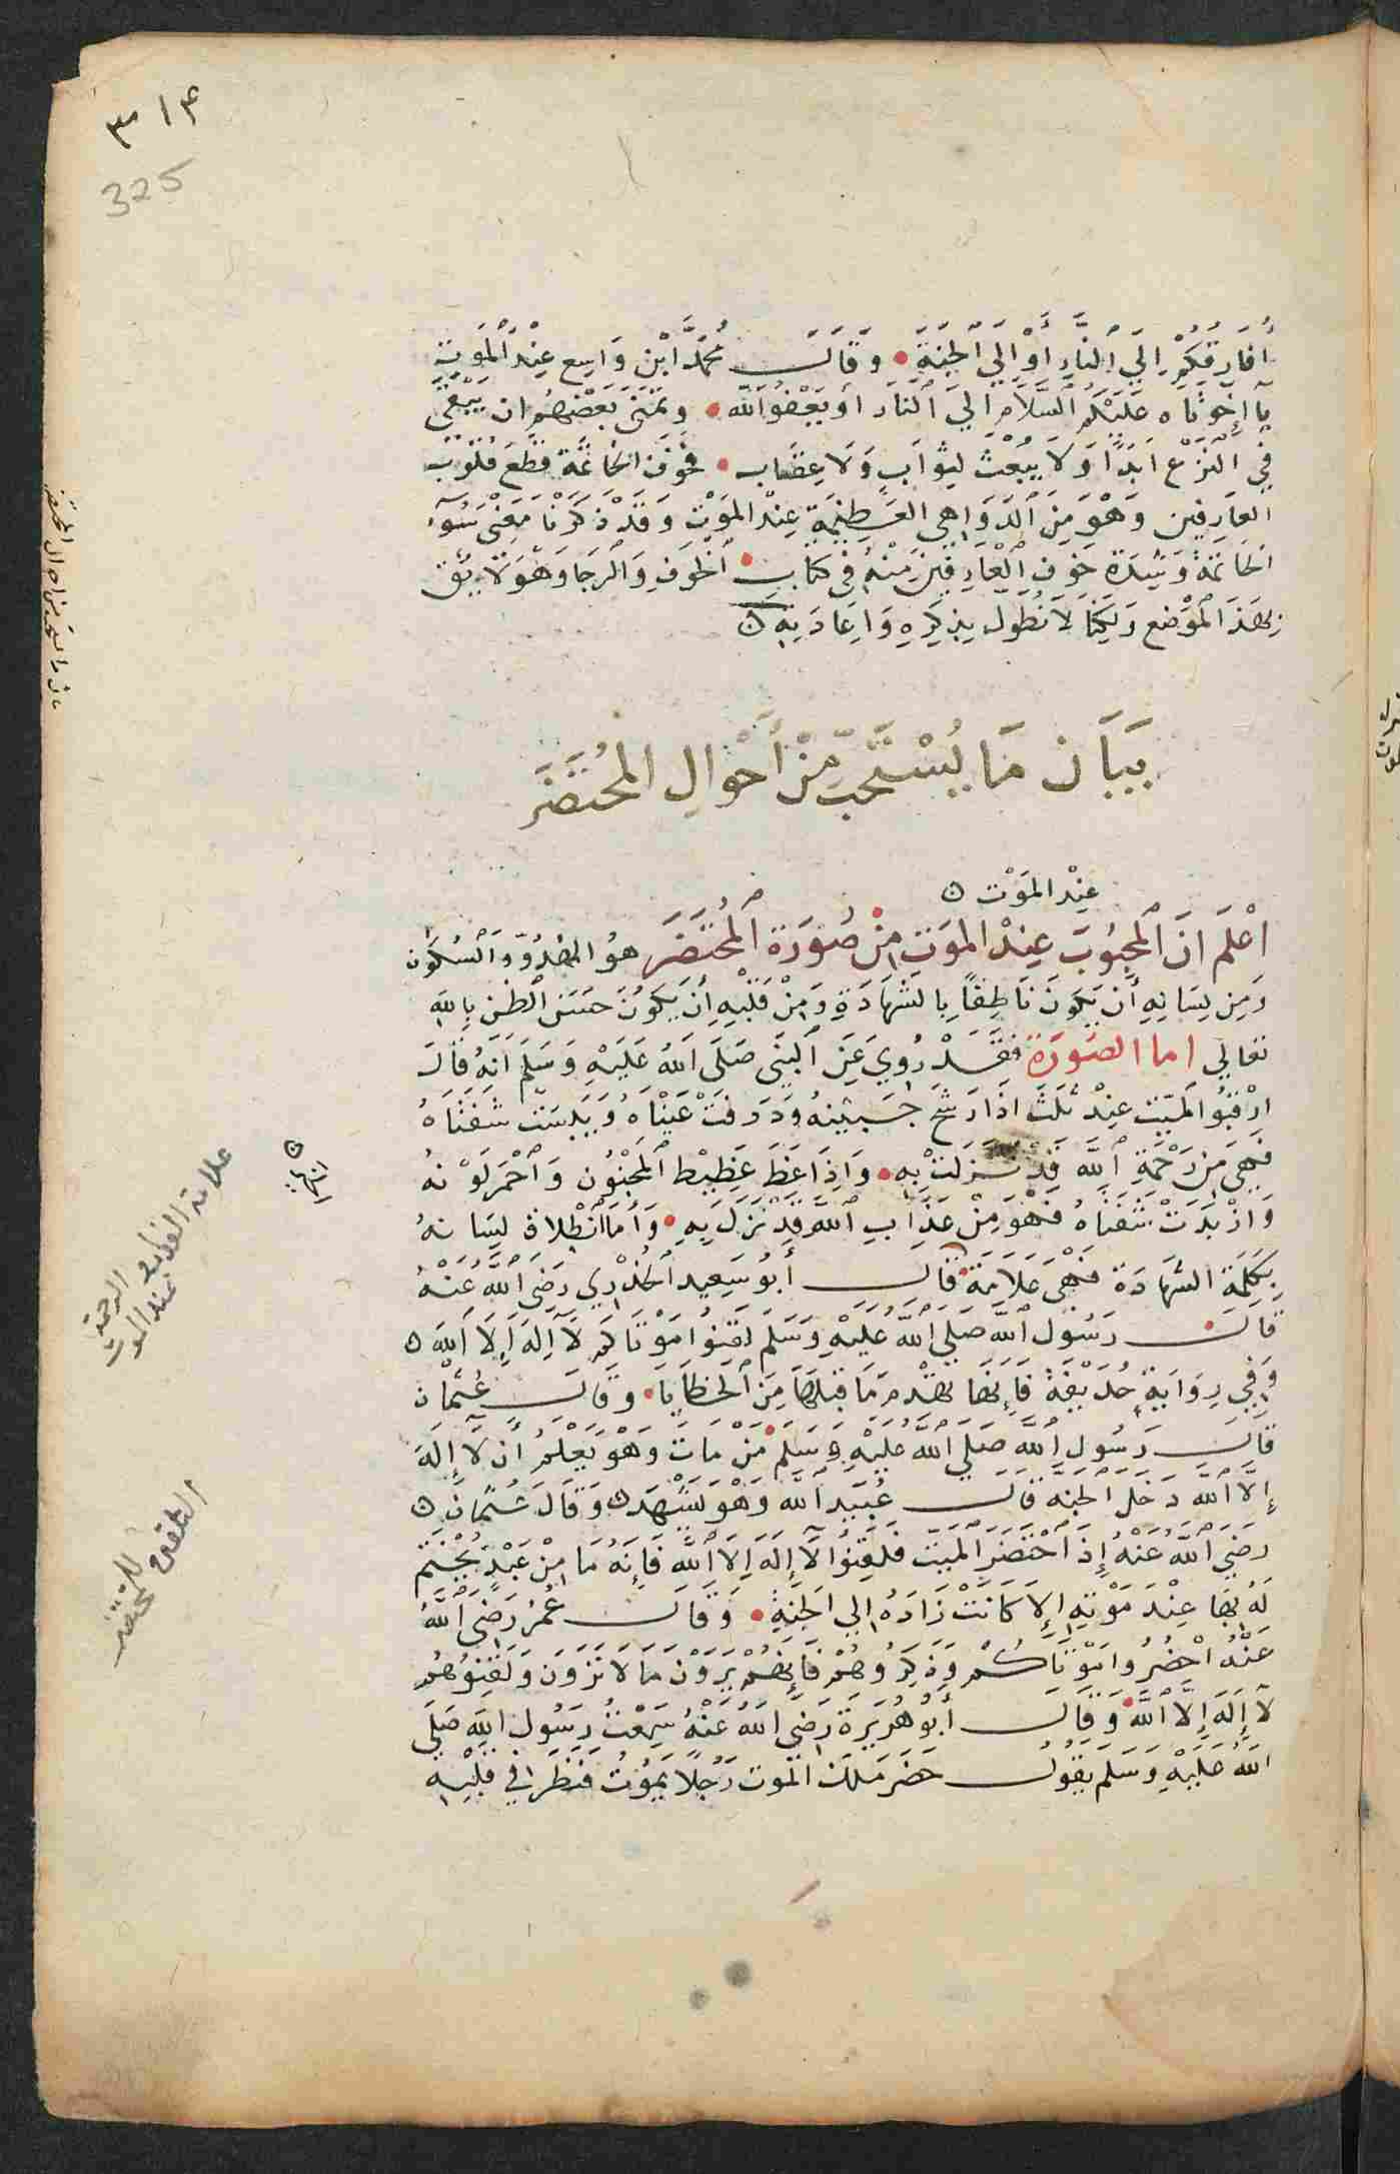 ٣١۴
325
أفارقكم إلى النار أو إلى الجنة • وقال محمد ابن واسع عند الموت
يا إخوتاه عليكم السلام إلى النار او يعفوا الله • وتمنى بعضهم ان يبقى
في النزع ابدًا ولا يبعث لثواب ولا عقاب • فخوف الخاتمة قطع قلوب
العارفين وهو من الدواهي العظيمة عند الموت وقد ذكرنا معنى سوء
الخاتمة وشدة خوف العارفين منه في كتاب الخوف والرجا وهو لايق
بهذا الموضع ولكنا لا نطول بذكره واعادته ن
بيان ما يستحب من أحوال المحتضر
عند الموت ن
اعلم ان المحبوب عند الموت من صورة المحتضر هو الهدوّ والسكون
ومن لسانه أن يكون ناطقًا بالشهادة ومن قلبه أن يكون حسن الظن بالله
تعالى اما الصورة فقد روي عن النبي صلى الله عليه وسلم أنه قال
ارقبوا الميت عند ثلث اذا رشح جبينه وذرفت عيناه ويبست شفتاه
فهي من رحمة الله قد نزلت به • وإذا غط غطيط المخنوق واحمر لونه
وازبدت شفتاه فهو من عذاب الله قد نزل به • وأما انطلاق لسانه
بكلمة الشهادة فهي علامة قال أبو سعيد الخدري رضي الله عنه
قال رسول الله صلى الله عليه وسلم لقنوا موتاكم لا اله إلا الله ن
وفي رواية حذيفة فإنها تهدم ما قبلها من الخطايا • وقال عثمان
قال رسول الله صلى الله عليه وسلم من مات وهو يعلم أن لا إله
إلا الله دخل الجنة قال عبيد الله وهو يشهد ن وقال عثمان ن
رضي الله عنه إذا احتضر الميت فلقنوا لا إله إلا الله فإنه ما من عبد يختم
له بها عند موته إلا كانت زاده إلى الجنة • وقال عمر رضي الله
عنه احضروا موتاكم وذكروهم فإنهم يرون ما لا ترون ولقنوهم
لا إله إلا الله وقال أبو هريرة رضي الله عنه سمعت رسول الله صلى
الله عليه وسلم يقول حضر ملك الموت رجلًا يموت فنظر في قلبه
علامة العذاب والرحمة
عند الموت
التلقين للمحتضر